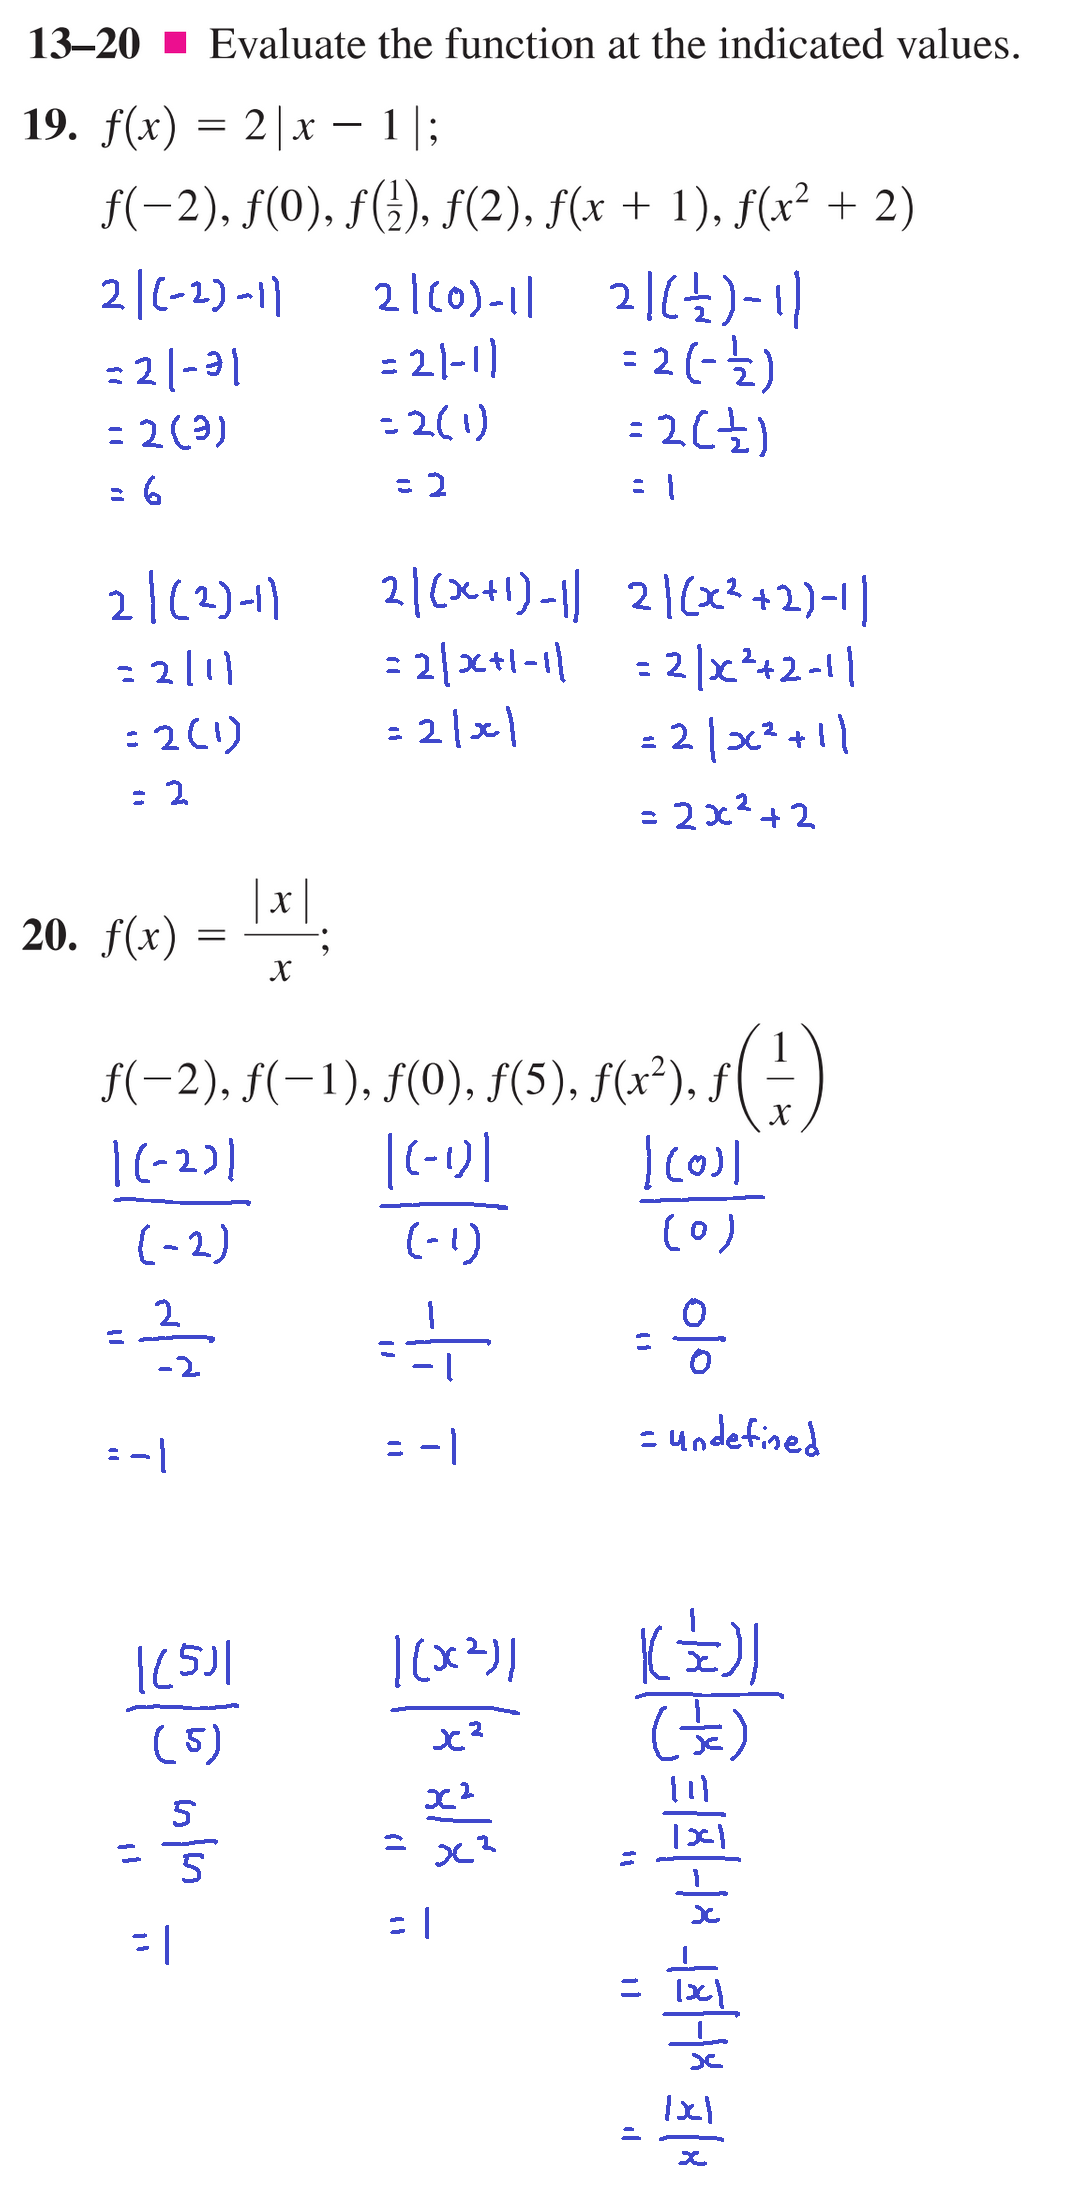 13–20 ■ Evaluate the function at the indicated values.
19. f(x) = 2|x − 1|;
f(−2), f(0), f(1/2), f(2), f(x + 1), f(x² + 2)
2|(-2)-1| 2|(0)-1| 2|(1/2)-1|
=2|-3| =2|-1| =2(-1/2)
=2(3) =2(1) =2(1/2)
=6 =2 =1
2|(2)-1| 2|(x+1)-1| 2|(x²+2)-1|
=2|1| =2|x+1-1| =2|x²+2-1|
=2(1) =2|x| =2|x²+1|
=2 =2x²+2
20. f(x) = |x|/x;
f(−2), f(−1), f(0), f(5), f(x²), f(1/x)
|(-2)|/(-2) |(-1)|/(-1) |(0)|/(0)
=2/-2 =1/-1 =0/0
=-1 =-1 =undefined
|(5)|/(5) |(x²)|/x² |(1/x)|/(1/x)
=5/5 =x²/x² =(|1|/|x|)/(1/x)
=1 =1 =(1/|x|)/(1/x)
=|x|/x